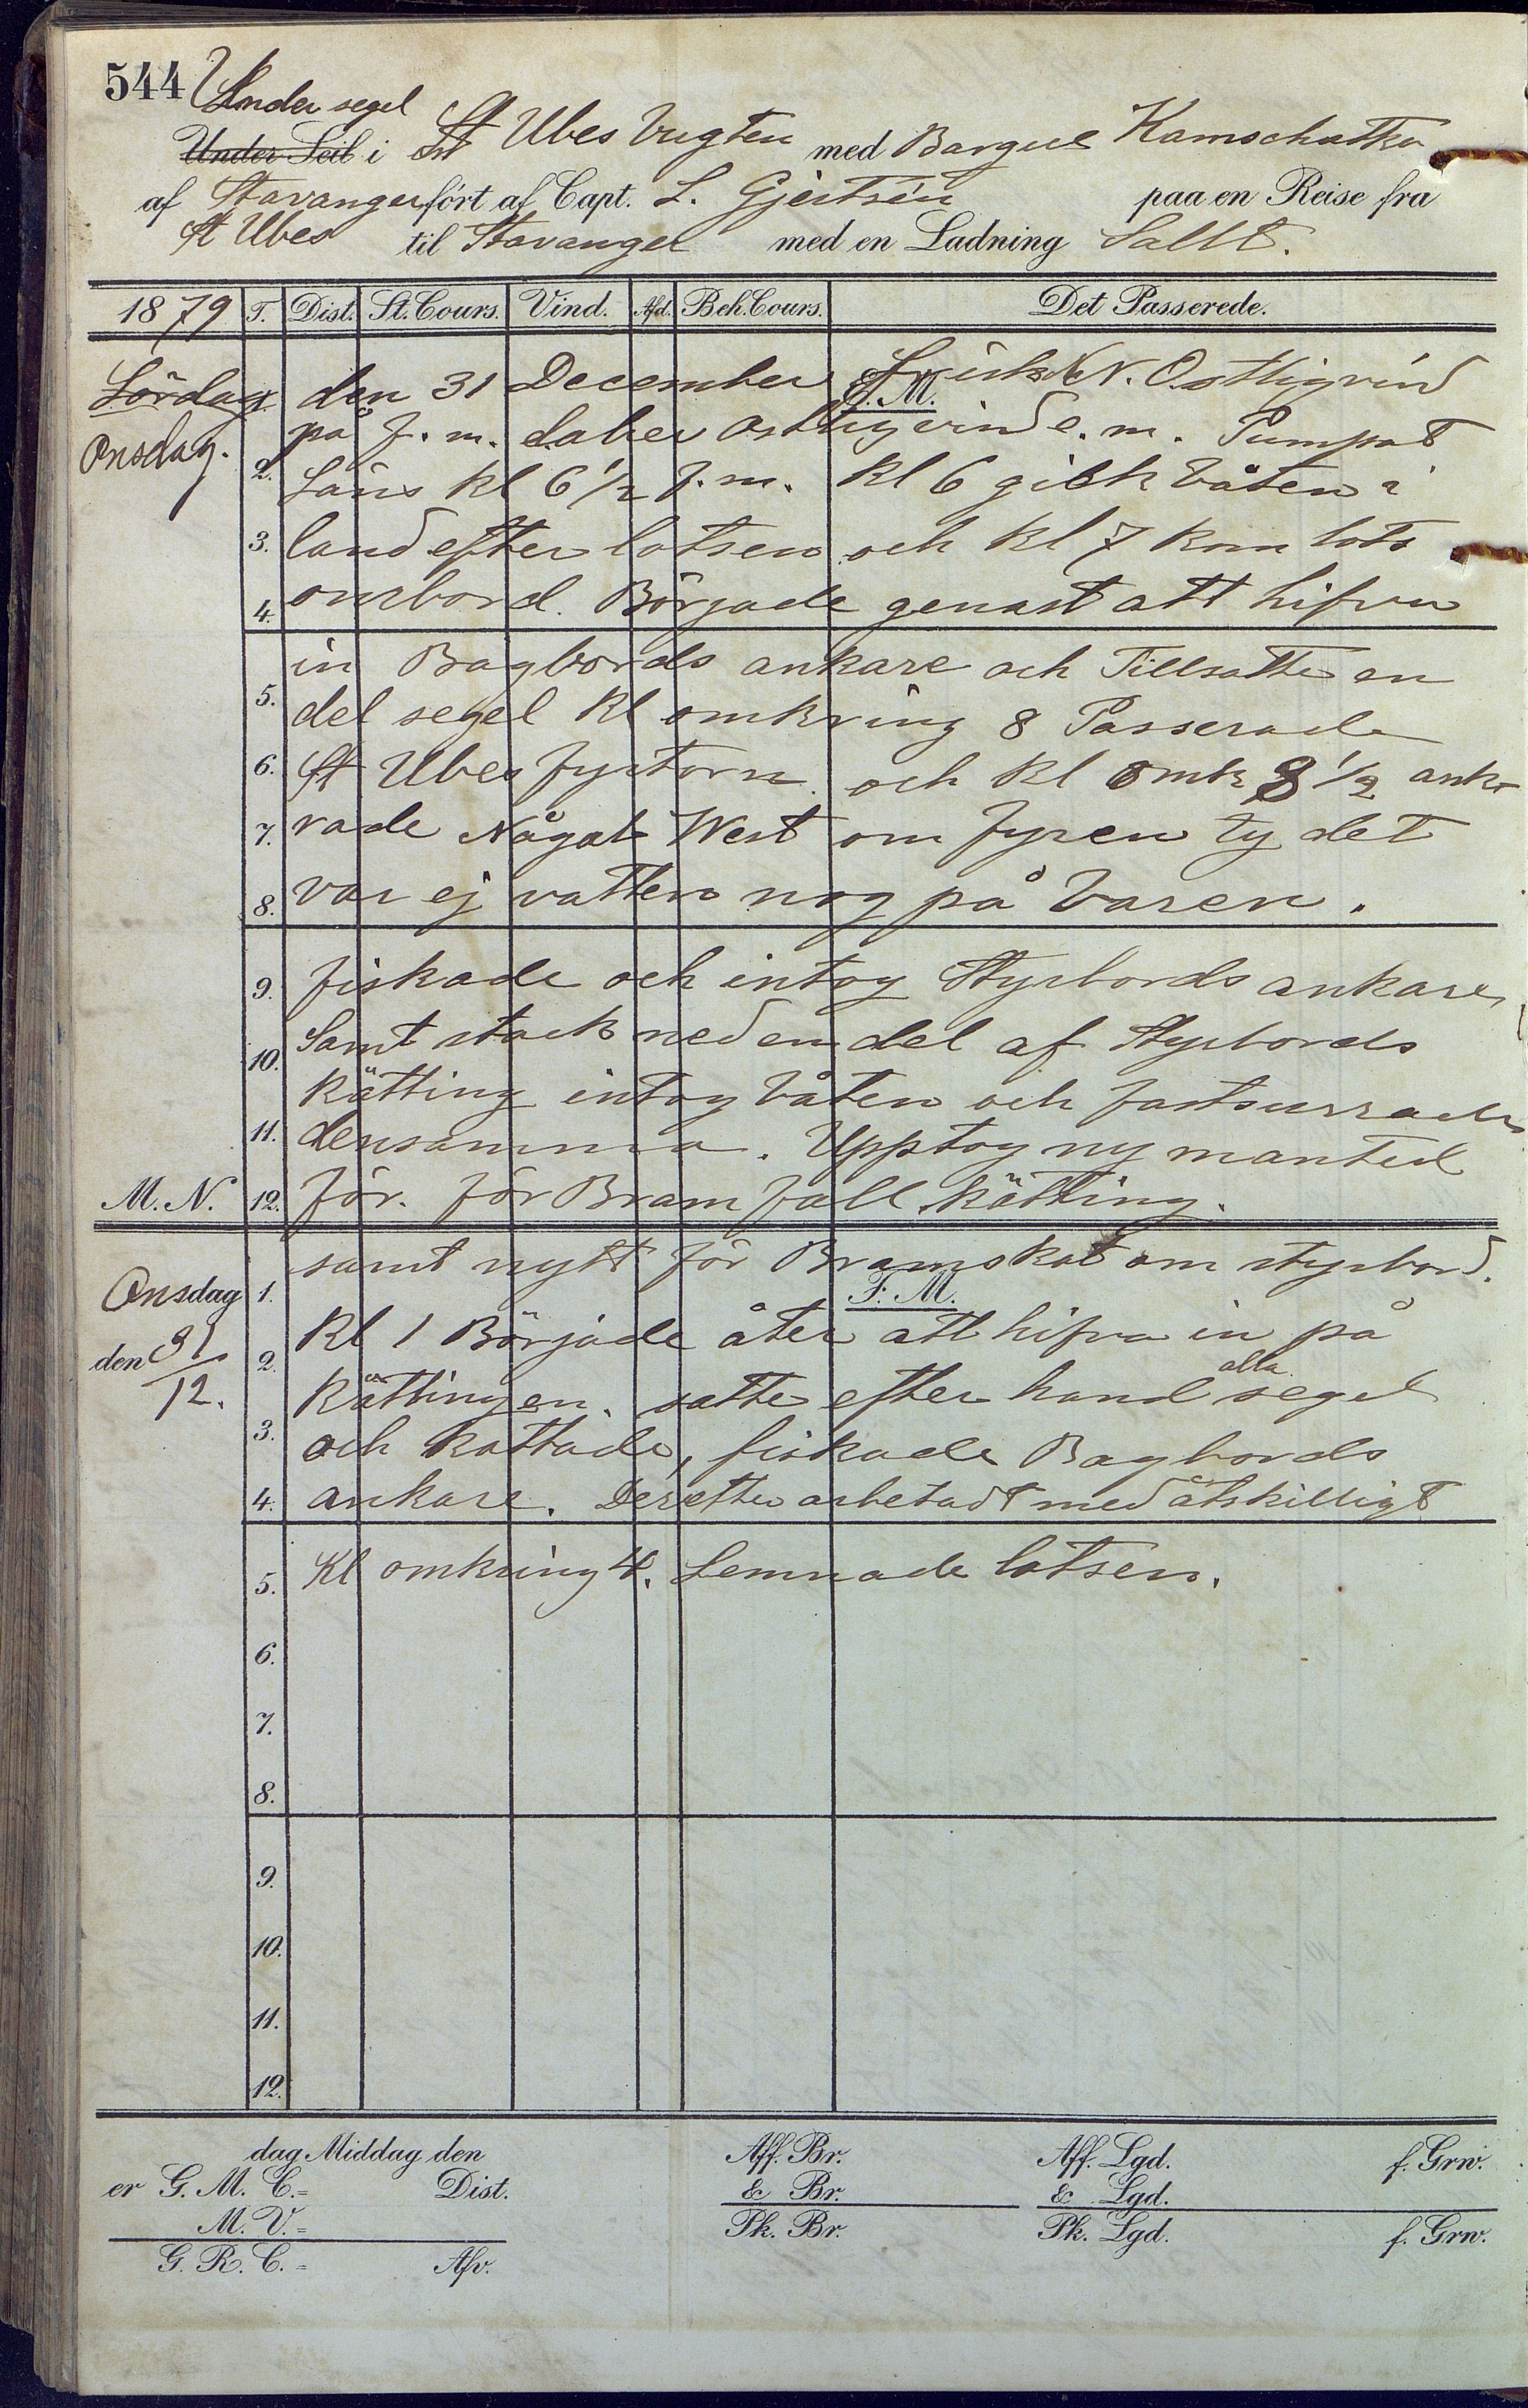 544 Under segel
Under Seil i St Ubes Bugten med Barque Kamschatka
af Stavanger fört af Capt. L. Gjertsen paa en Reise fra
St Ubes til Stavanger med en Ladning Sallt.
1879 T. Dist. St. Cours. Vind. Afd. Beh. Cours. Det Passerede.
Lördag den 31 December Frisk N.N. Ostligvind
E. M.
Onsdag. på f. m. laber ostligvind e. m. Pumpat
2. Läns kl 6 1/2 f. m. kl 6 gick båten i
3. land efter lotsen och kl 7 kom lots
4. ombord. Började genast att hifva
in Bagbords ankare och Tillsatte en
5. del segel kl omkring 8 Passerade
6. St Ubes fyrtorn och kl omkr 8 1/2 ank-
7. rade Något West om fyren ty det
8. var ej vatten nog på Baren.
9. fiskade och intog Styrbords ankare,
10. Samt stack ned en del af Styrbords
kätting intog båten och fastsurrade
11. densamma. Upptog ny mantel
M. N. 12. för. för Bram fall kätting.
samt nytt för Bramskot om styrbord.
Onsdag 1. F. M.
den 31/12. 2. Kl 1 Började åter att hifva in på
kättingen. satte efter hand alla segel
3. och kattade, fiskade Bagbords
4. ankare. Derefter arbetadt med åtskilligt
5. Kl omkring 4. Lemnade lotsen.
6.
7.
8.
9.
10.
11.
12.
dag Middag den Aff. Br. Aff. Lgd. f. Grw.
er G. M. C.= Dist. & Br. & Lgd.
M. V.= Pk. Br. Pk. Lgd. f. Grw.
G. R. C.= Afv.